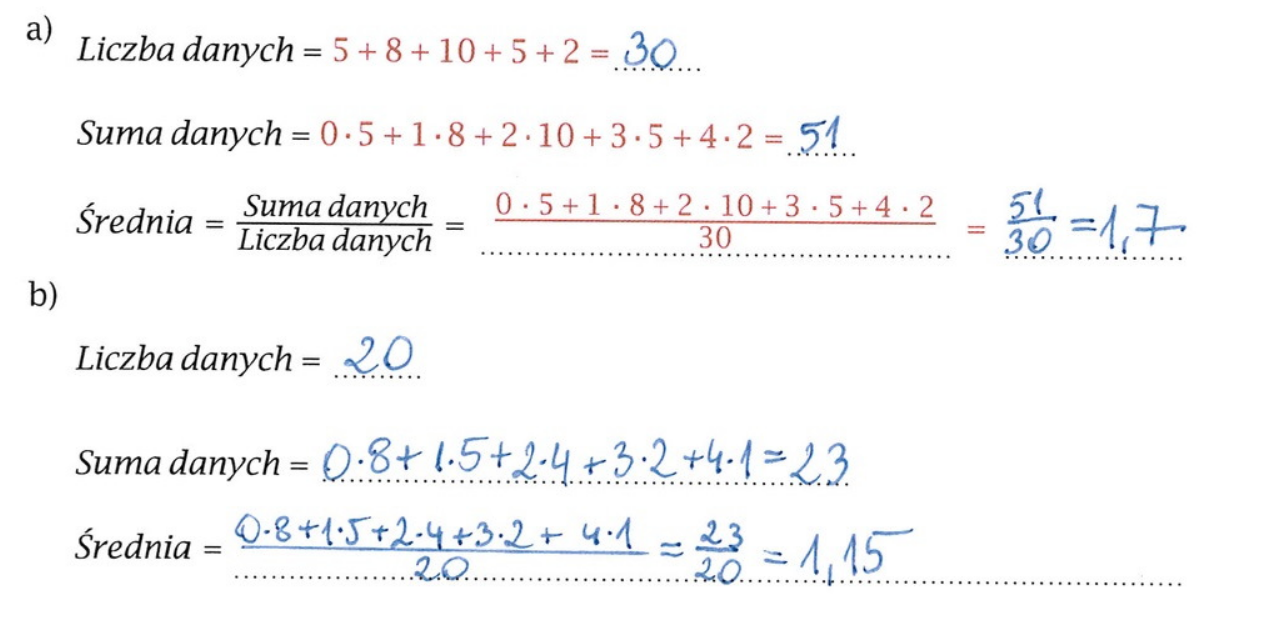 a)
Liczba danych = 5 + 8 + 10 + 5 + 2 = 30
Suma danych = 0 · 5 + 1 · 8 + 2 · 10 + 3 · 5 + 4 · 2 = 51
Średnia = Suma danych / Liczba danych = 0 · 5 + 1 · 8 + 2 · 10 + 3 · 5 + 4 · 2 / 30 = 51 / 30 = 1,7
b)
Liczba danych = 20
Suma danych = 0·8+1·5+2·4+3·2+4·1=23
Średnia = 0·8+1·5+2·4+3·2+4·1 / 20 = 23 / 20 = 1,15